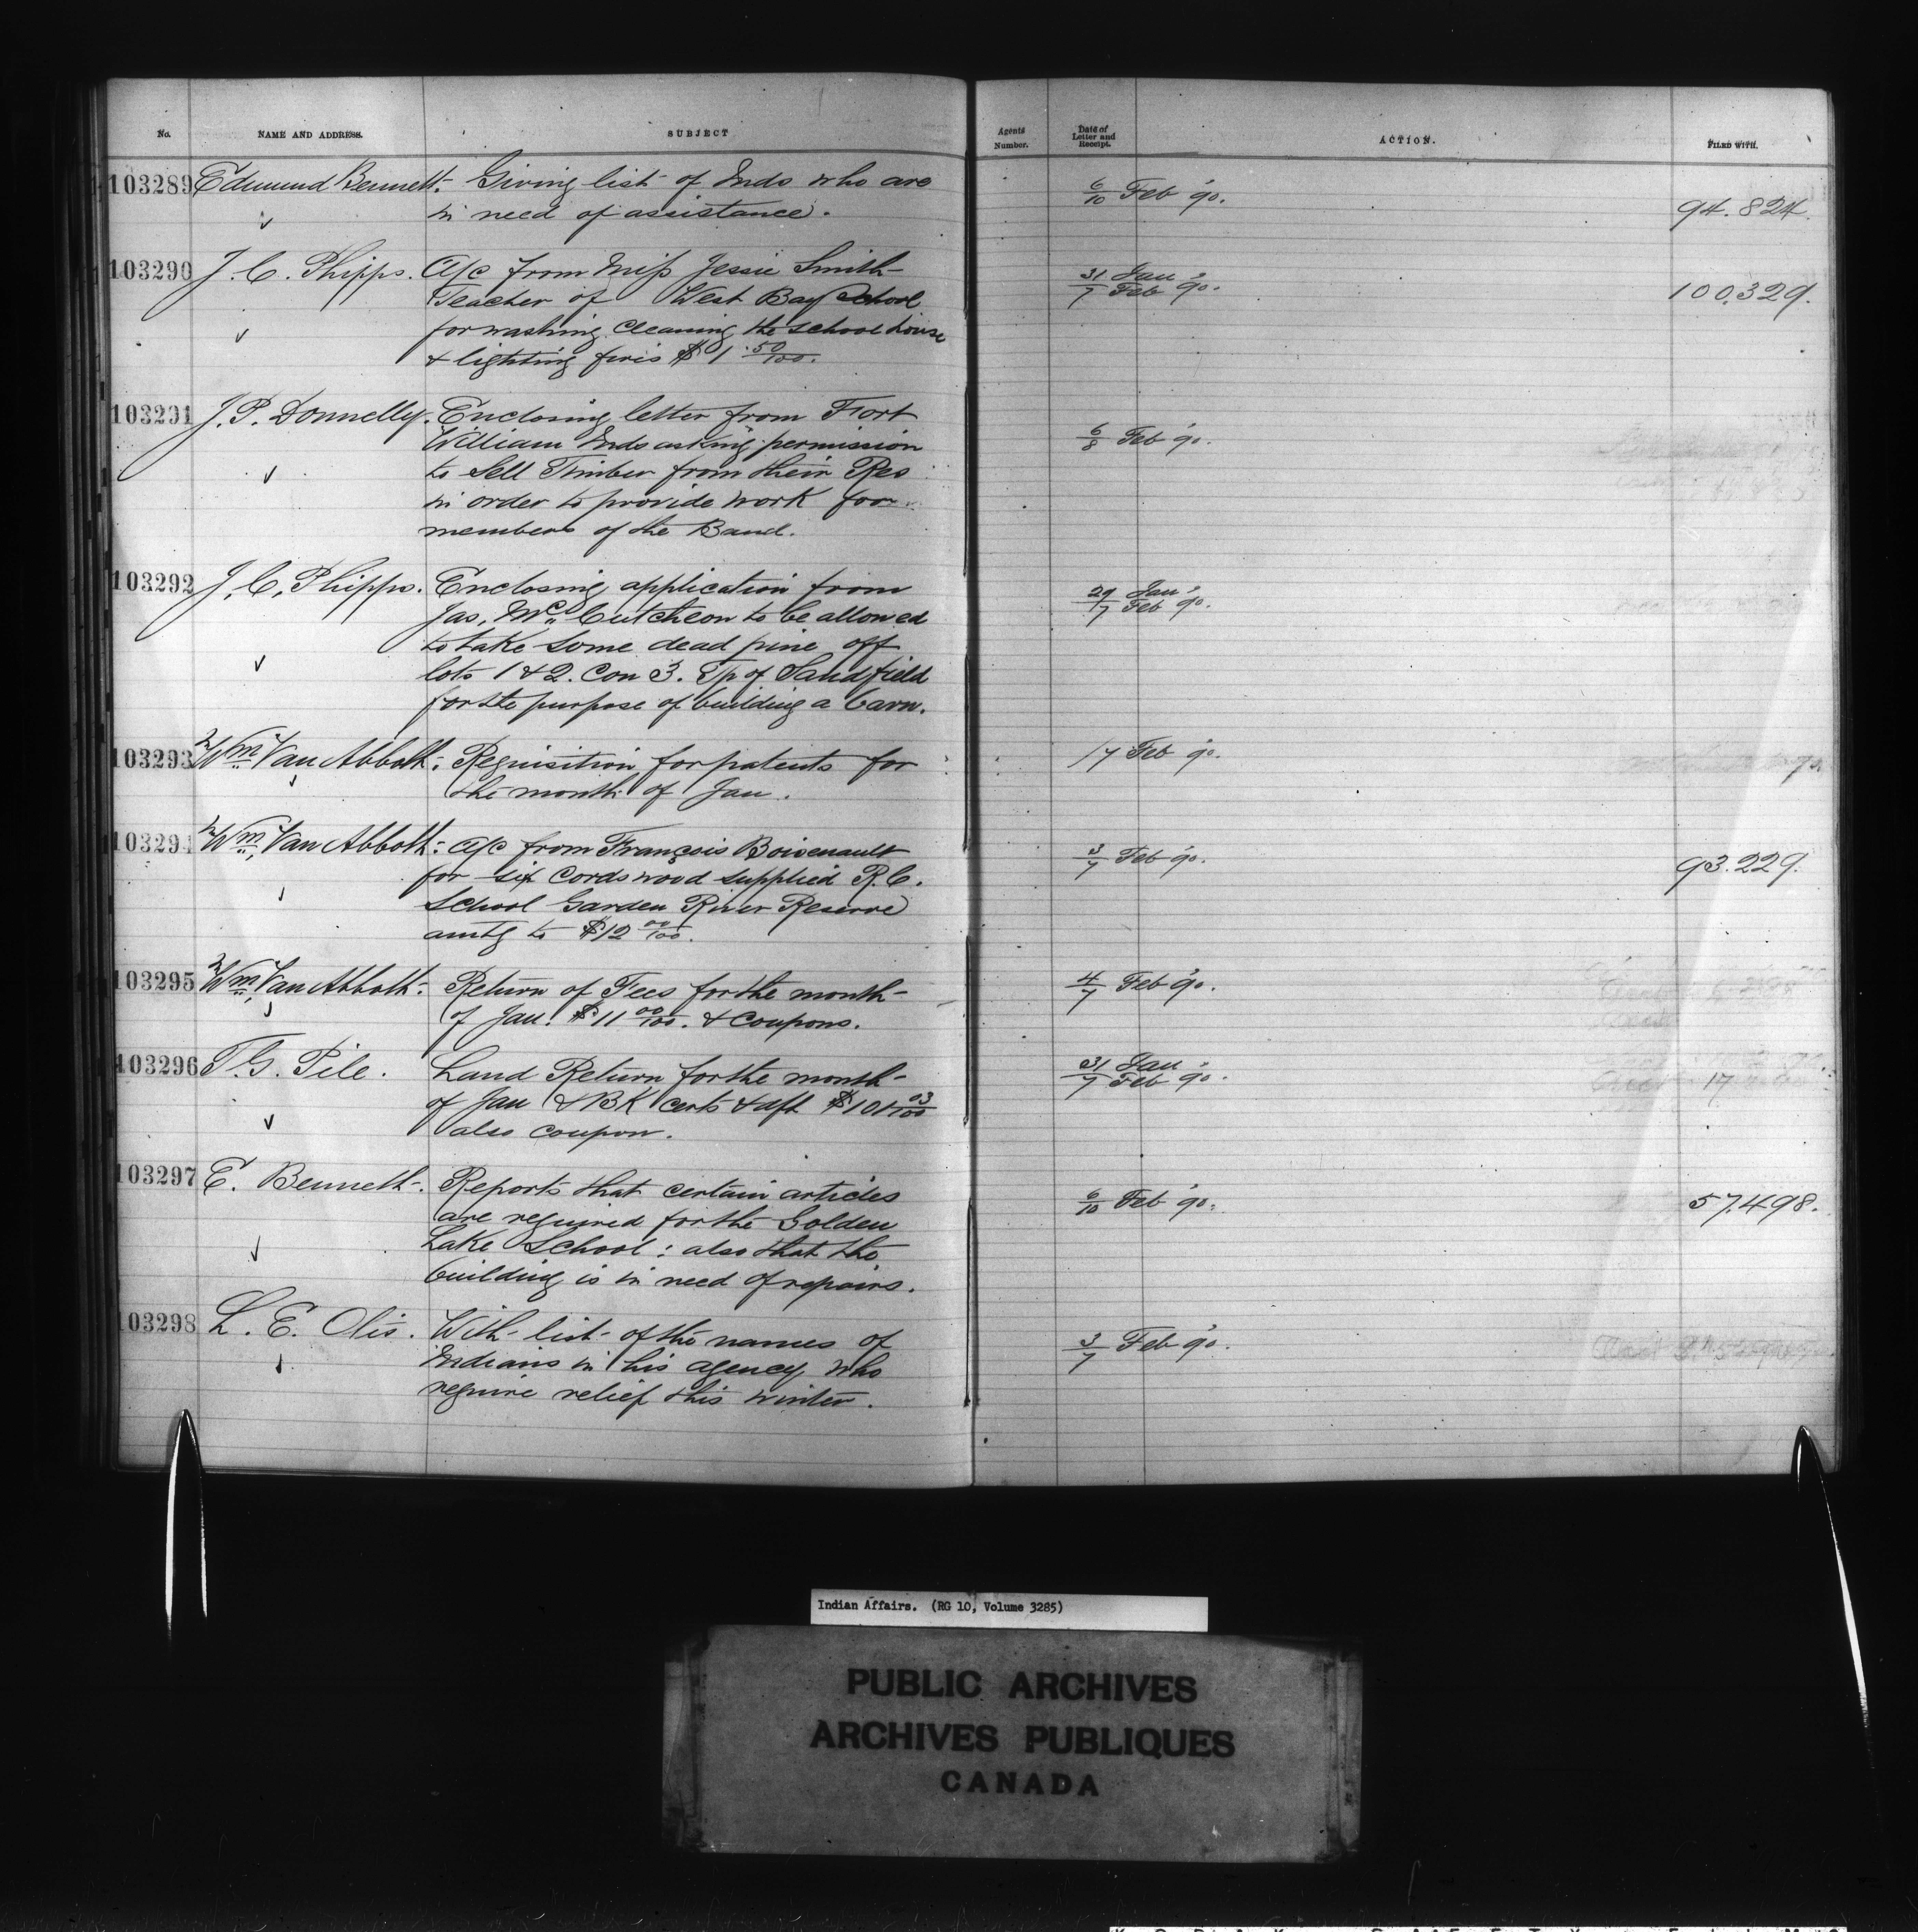 No. NAME AND ADDRESS. SUBJECT Agents Number. Date of Letter and Receipt. ACTION. FILED WITH.
103289 Edmund Bennett. Giving list of Inds who are 6/10 Feb '90. 94.824.
in need of assistance.
103290 J. C. Phipps. a/c from Miss Jessie Smith 31 Jan / 7 Feb '90. 100.329.
Teacher of West Bay School
for washing cleaning the school house
& lighting fires $1.50/100.
103291 J. P. Donnelly. Enclosing letter from Fort 6/8 Feb '90.
William Inds asking permission
to sell Timber from their Res
in order to provide work for
members of the Band.
103292 J. C. Phipps. Enclosing application from 29 Jan / 7 Feb '90.
Jas. McCutcheon to be allowed
to take some dead pine off
lots 1 & 2. Con 3. Tp of Sandfield
for the purpose of building a barn.
103293 Wm Van Abbott. Requisition for patents for 17 Feb '90.
the month of Jan.
103294 Wm Van Abbott. a/c from François Boisenault 3/7 Feb '90. 93.229.
for six cords wood supplied R.C.
School Garden River Reserve
amtg to $12 00/100.
103295 Wm Van Abbott. Return of Fees for the month 4/7 Feb '90.
of Jan. $11 00/100. & coupons.
103296 T. G. Pile. Land Return for the month 31 Jan / 7 Feb '90. 17
of Jan & BK certs & dft $101 03/100
also coupon.
103297 E. Bennett. Reports that certain articles 6/10 Feb '90. 57.498.
are required for the Golden
Lake School: also that the
building is in need of repairs.
103298 L. E. Otis. With list of the names of 3/7 Feb '90.
Indians in his agency who
require relief this winter.
Indian Affairs. (RG 10, Volume 3285)
PUBLIC ARCHIVES
ARCHIVES PUBLIQUES
CANADA